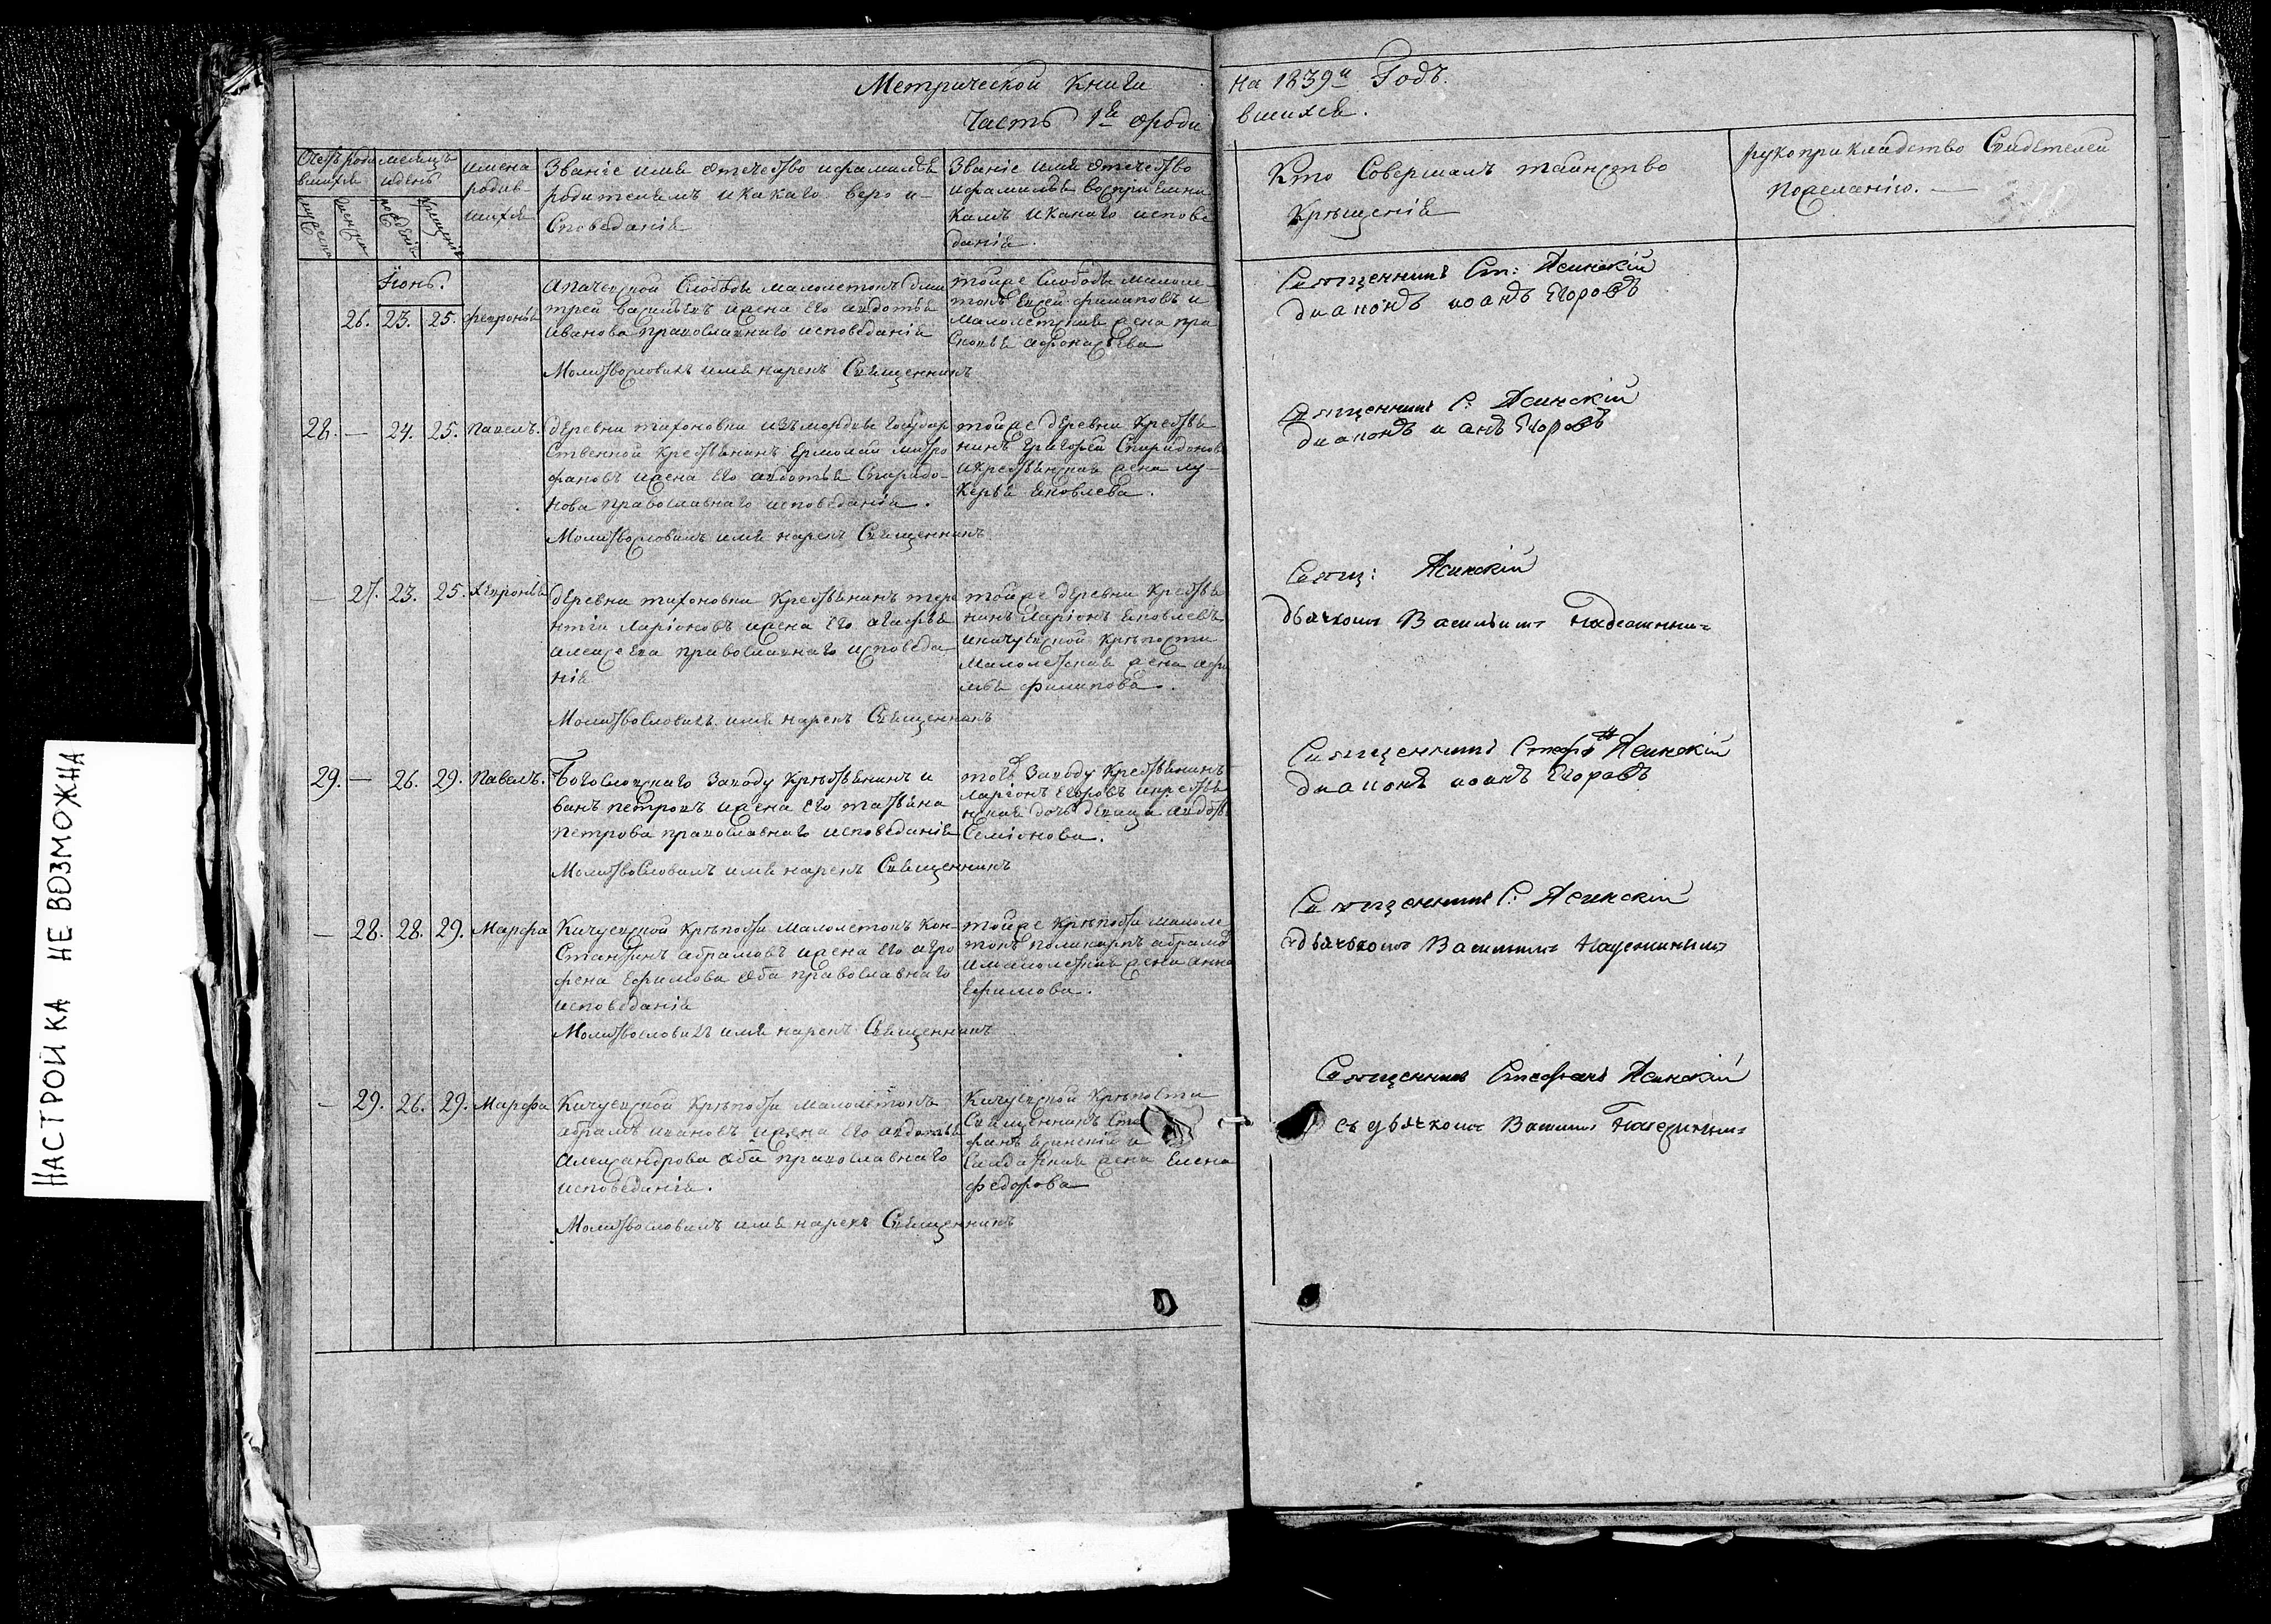 Метрической Книги
на 1839й Годъ.
Часть 1я ороди
вшихся.
имена родив шихся
Званіе имя отечество ифамилія
родителямъ икакаго веро и-
споведанія
Званіе имя отечество
ифамилія воспріемни
камъ икакаго испове
данія.
Кто Совершалъ таинство
Крещенія
рукоприкладство Свидетелей
пожеланію.
Іюнь.
26. 23. 25. февронья
слободы малолетокъ дми
трей васильевъ ижена его авдотья
иванова православнаго исповеданія
Молитвословилъ имя нарекъ Священникъ
тойже Слободы малоле
токъ филиповъ и
Малолетская жена пра
сковья афонасьева
Священникъ Ст: Ясинскій
диаконъ иоанъ Егоровъ
28. — 24. 25. Павелъ.
деревни тихоновки изъ мордвы государ
ственной крестьянинъ Ермолай митро
фановъ ижена его авдотья Спиридо-
нова православнаго исповеданія.
Молитвословилъ имя нарекъ Священникъ
тойже деревни крестья
нинъ григорей Спиридоновъ
икрестьянская жена лу-
керья яковлева.
Священникъ С: Ясинскій
диаконъ иоанъ Егоровъ
— 27. 23. 25. Хевронія
деревни тихоновки Крестьянинъ тере
нтіи ларіоновъ ижена его агафья
алексеева православнаго исповеда
нія
Молитвословилъ имя нарекъ Священникъ
тойже деревни крестья
нинъ Ларіонъ яковлевъ
икичуевской крепости
Малолетская жена
филипова.
Свящ: Ясинскій
дьячкомъ Васильемъ
29. — 26. 29. Павелъ.
Богословскаго Заводу Крестьянинъ и
ванъ петровъ ижена его татьяна
петрова православнаго исповеданія
Молитвословилъ имя нарекъ Священникъ
того Заводу Крестьянинъ
ларіонъ Егоровъ икрестья
нская дочь девица авдотья
Семіонова.
Священникъ Стефанъ Ясинскій
диаконъ иоанъ Егоровъ
— 28. 28. 29. Марфа
Кичуевской Крепости Малолетокъ Кон-
стантинъ абрамовъ ижена его агро
фена Ефимова оба православнаго
исповеданія
Молитвословилъ имя нарекъ Священникъ
тойже Крепости малоле
токъ поликарпъ абрамовъ
ималолетская жена анна
Ефимова.
Священникъ С: Ясинскій
дьячкомъ Васильемъ
— 29. 26. 29. Марфа
Кичуевской Крепости Малолетокъ
абрамъ ивановъ ижена его авдотья
Александрова оба православнаго
исповеданія.
Молитвословилъ имя нарекъ Священникъ
Кичуевской Крепости
Священникъ Сте
фанъ Ясинскій и
Салдатская жена Елена
федорова
Священникъ Стефанъ Ясинскій
съ дьячкомъ Васильемъ
НАСТРОЙКА НЕ ВОЗМОЖНА